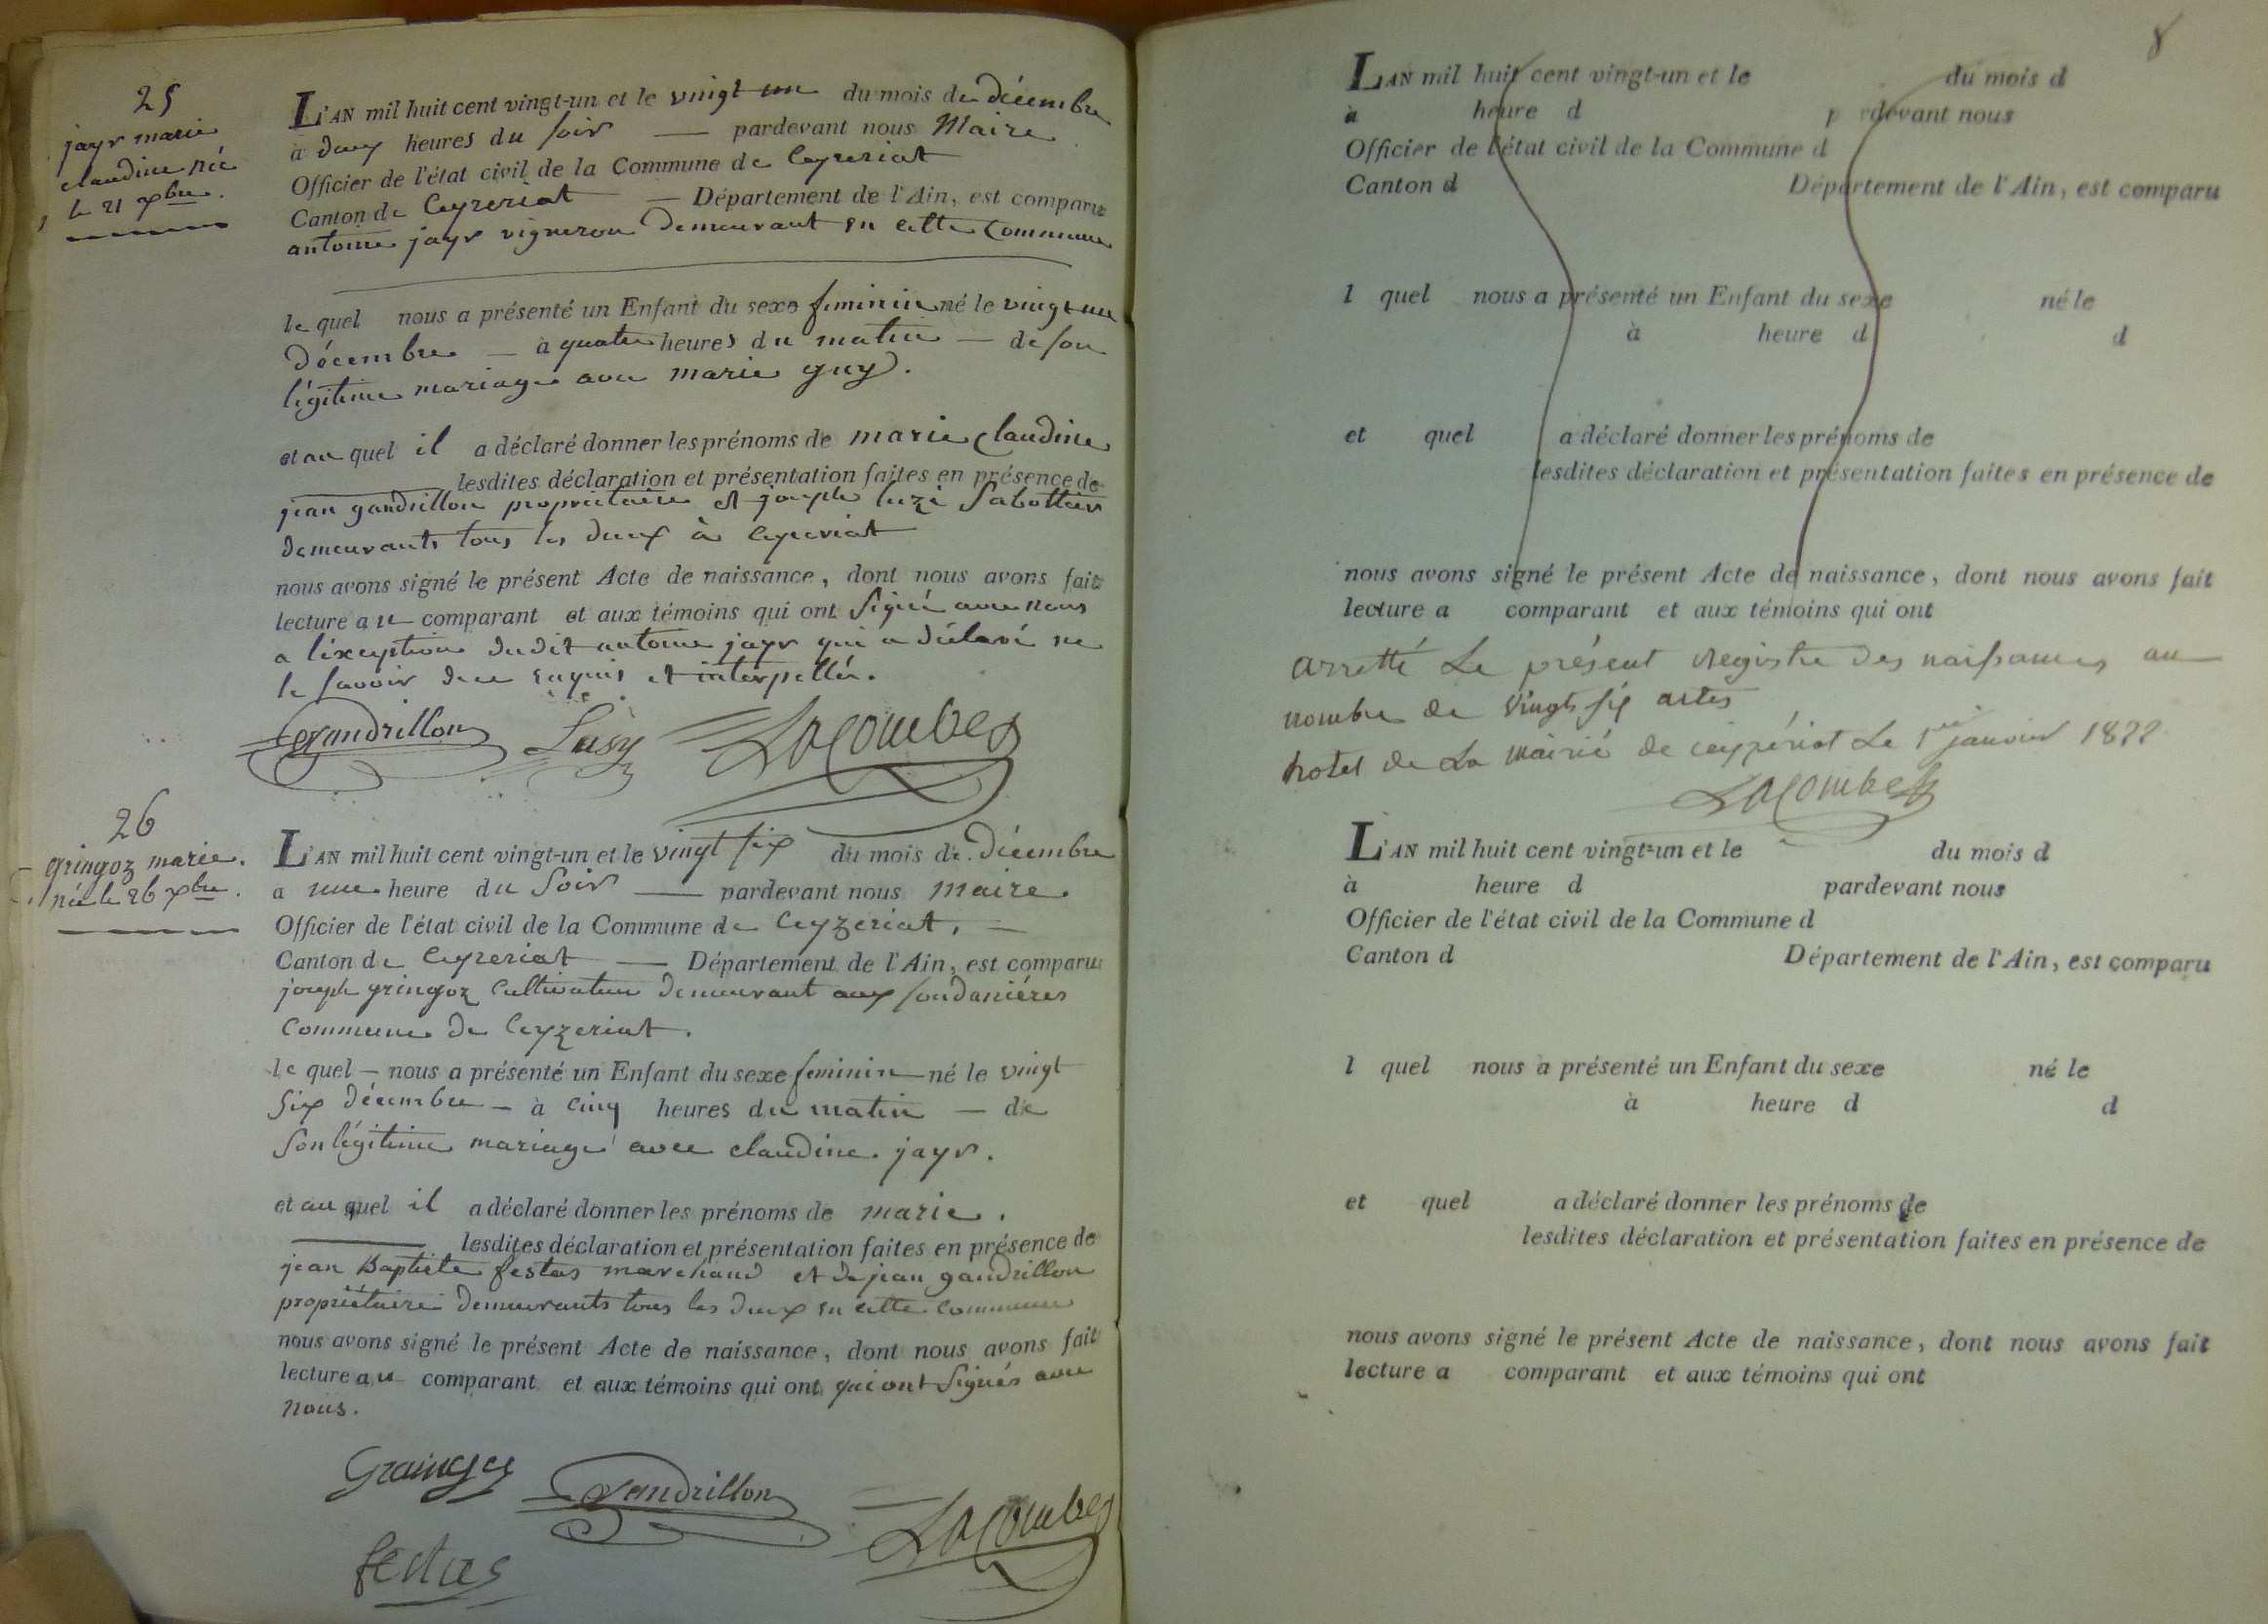 25
jayr marie
claudine née
le 21 xbre.
L'AN mil huit cent vingt-un et le vingt un du mois de décembre
à deux heures du soir — pardevant nous Maire
Officier de l'état civil de la Commune de Ceyzeriat
Canton de Ceyzeriat — Département de l'Ain, est comparu
antoine jayr vigneron demeurant en cette Commune
le quel nous a présenté un Enfant du sexe feminin né le vingt un
décembre — à quatre heures du matin — de son
légitime mariage avec marie guy.
et au quel il a déclaré donner les prénoms de marie claudine
lesdites déclaration et présentation faites en présence de
jean gandrillon propriétaire et joseph luzi Sabottier
demeurants tous les deux à Ceyzeriat
nous avons signé le présent Acte de naissance, dont nous avons fait
lecture au comparant et aux témoins qui ont Signé avec nous
a l'exception dudit antoine jayr qui a déclaré ne
le savoir de ce enquis et interpellé.
Gandrillon Lusy Lacombe
26
gringoz marie.
née le 26 xbre.
L'AN mil huit cent vingt-un et le vingt six du mois de décembre
a une heure du Soir — pardevant nous maire
Officier de l'état civil de la Commune de Ceyzeriat, —
Canton de Ceyzeriat — Département de l'Ain, est comparu
joseph gringoz Cultivateur demeurant aux soudanières
Commune de Ceyzeriat.
le quel — nous a présenté un Enfant du sexe feminin né le vingt
Six décembre — à Cinq heures du matin — de
Son légitime mariage avec claudine jayr.
et au quel il a déclaré donner les prénoms de marie.
lesdites déclaration et présentation faites en présence de
jean Baptiste festas marchand et de jean gandrillon
propriétaire demeurants tous les deux en cette commune
nous avons signé le présent Acte de naissance, dont nous avons fait
lecture au comparant et aux témoins qui ont qui ont Signés avec
nous.
Gandrillon
Lacombe
festas
8
L'AN mil huit cent vingt-un et le du mois d
à heure d pardevant nous
Officier de l'état civil de la Commune d
Canton d Département de l'Ain, est comparu
l quel nous a présenté un Enfant du sexe né le
à heure d d
et quel a déclaré donner les prénoms de
lesdites déclaration et présentation faites en présence de
nous avons signé le présent Acte de naissance, dont nous avons fait
lecture a comparant et aux témoins qui ont
arretté Le présent Registre des naissances au
nombre de vingt six actes
hotel de La mairie de ceyzériat Le 1er janvier 1822
Lacombe
L'AN mil huit cent vingt-un et le du mois d
à heure d pardevant nous
Officier de l'état civil de la Commune d
Canton d Département de l'Ain, est comparu
l quel nous a présenté un Enfant du sexe né le
à heure d d
et quel a déclaré donner les prénoms de
lesdites déclaration et présentation faites en présence de
nous avons signé le présent Acte de naissance, dont nous avons fait
lecture a comparant et aux témoins qui ont